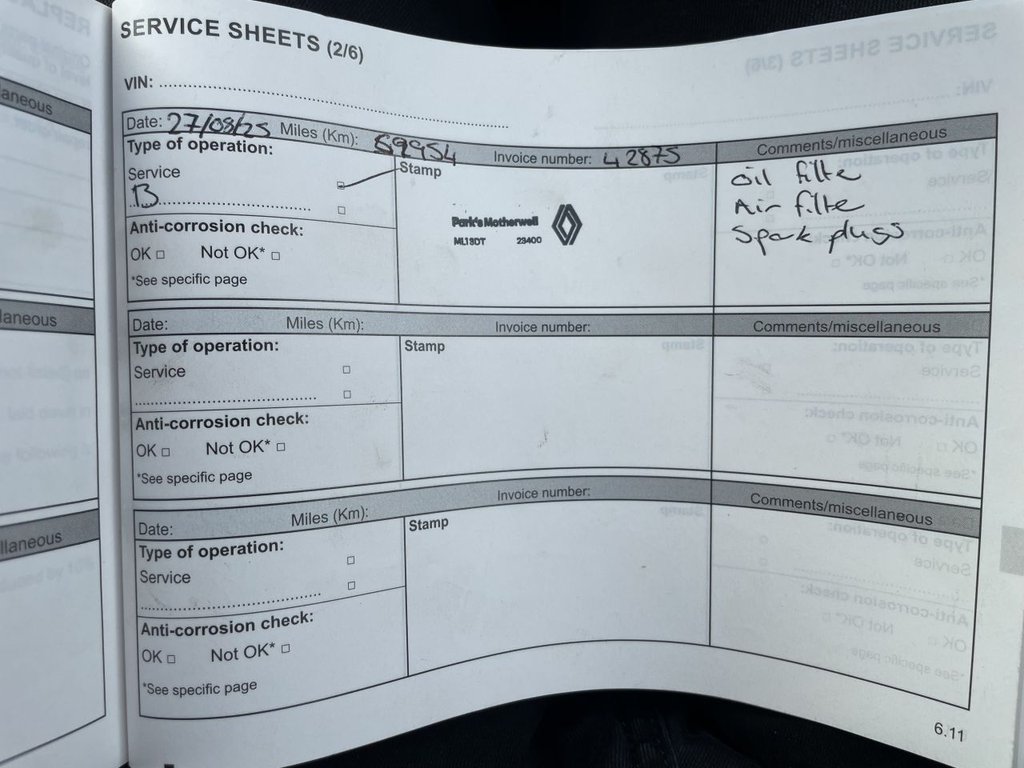 SERVICE SHEETS (2/6)
VIN:
Date: 27/08/25 Miles (Km): 59954 Invoice number: 42875 Comments/miscellaneous
Type of operation:
Service
B
Stamp
Park's Motherwell
ML13DT 23400
oil filte
Air filte
Spark plugs
Anti-corrosion check:
OK Not OK*
*See specific page
Date: Miles (Km): Invoice number: Comments/miscellaneous
Type of operation:
Service
Stamp
Anti-corrosion check:
OK Not OK*
*See specific page
Date: Miles (Km): Invoice number: Comments/miscellaneous
Type of operation:
Service
Stamp
Anti-corrosion check:
OK Not OK*
*See specific page
6.11